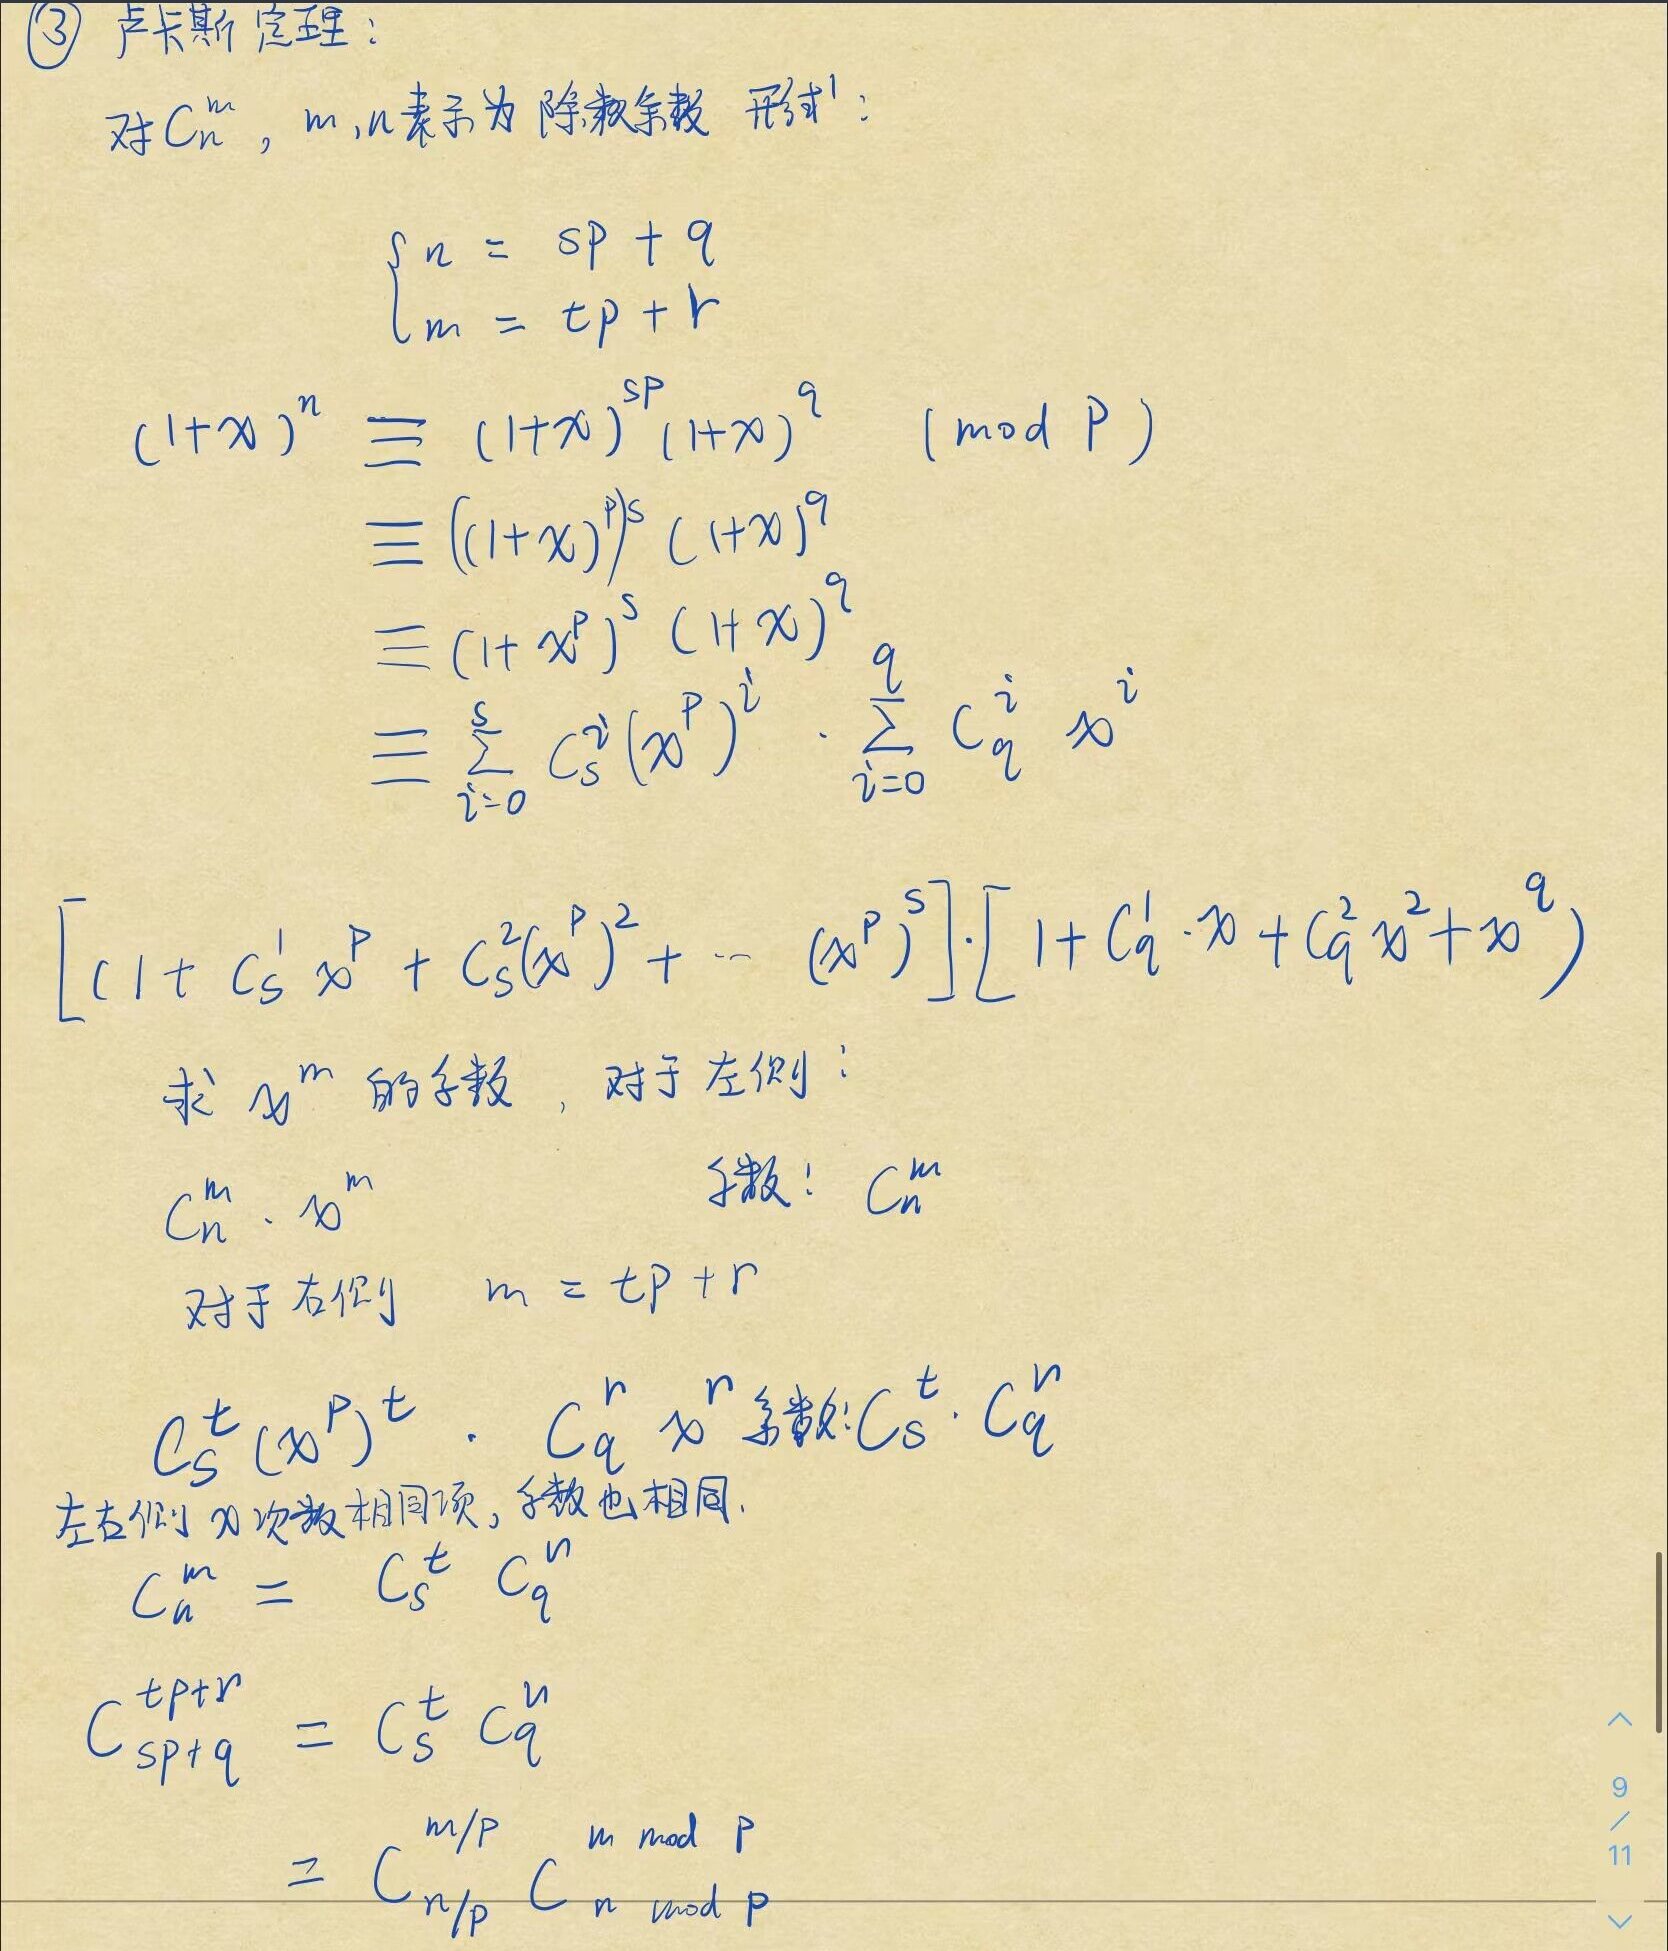 ③ 卢卡斯定理：
对 C_n^m , m,n表示为 除数余数 形式：
{ n = sp + q
m = tp + r
(1+x)^n ≡ (1+x)^{sp} (1+x)^q (mod P)
≡ ((1+x)^p)^s (1+x)^q
≡ (1+x^p)^s (1+x)^q
≡ \sum_{i=0}^{s} C_s^i (x^p)^i · \sum_{i=0}^{q} C_q^i x^i
[(1 + C_s^1 x^p + C_s^2 (x^p)^2 + ··· (x^p)^s]·[1 + C_q^1 ·x + C_q^2 x^2 + x^q)
求 x^m 的系数 , 对于左侧：
C_n^m · x^m 系数： C_n^m
对于右侧 m = tp + r
C_s^t (x^p)^t · C_q^r x^r 系数：C_s^t · C_q^r
左右侧 x 次数相同项, 系数也相同.
C_n^m = C_s^t C_q^r
C_{sp+q}^{tp+r} = C_s^t C_q^r
= C_{n/p}^{m/p} C_{n mod p}^{m mod p}
9
/
11